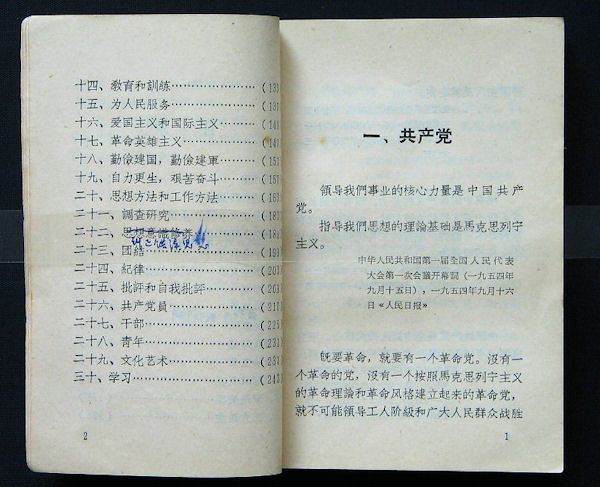 十四、教育和訓練……………(13
十五、为人民服务……………(137
十六、爱国主义和国际主义……(14
十七、革命英雄主义……………(14
十八、勤儉建国，勤儉建軍……(151
十九、自力更生，艰苦奋斗……(157
二十、思想方法和工作方法……(163
二十一、調查研究……………(18
二十二、思想意識修养…………(18
二十三、团結…………………(19
二十四、紀律…………………(20
二十五、批評和自我批評………(207
二十六、共产党员……………(22
二十七、干部…………………(227
二十八、青年…………………(23
二十九、文化艺术……………(237
三十、学习……………………(243
2
一、共产党
領导我們事业的核心力量是中国共产
党。
指导我們思想的理論基础是馬克思列宁
主义。
中华人民共和国第一届全国人民代表
大会第一次会議开幕詞（一九五四年
九月十五日），一九五四年九月十六
日《人民日报》
旣要革命，就要有一个革命党。沒有一
个革命的党，沒有一个按照馬克思列宁主义
的革命理論和革命风格建立起来的革命党，
就不可能領导工人阶級和广大人民群众战胜
1